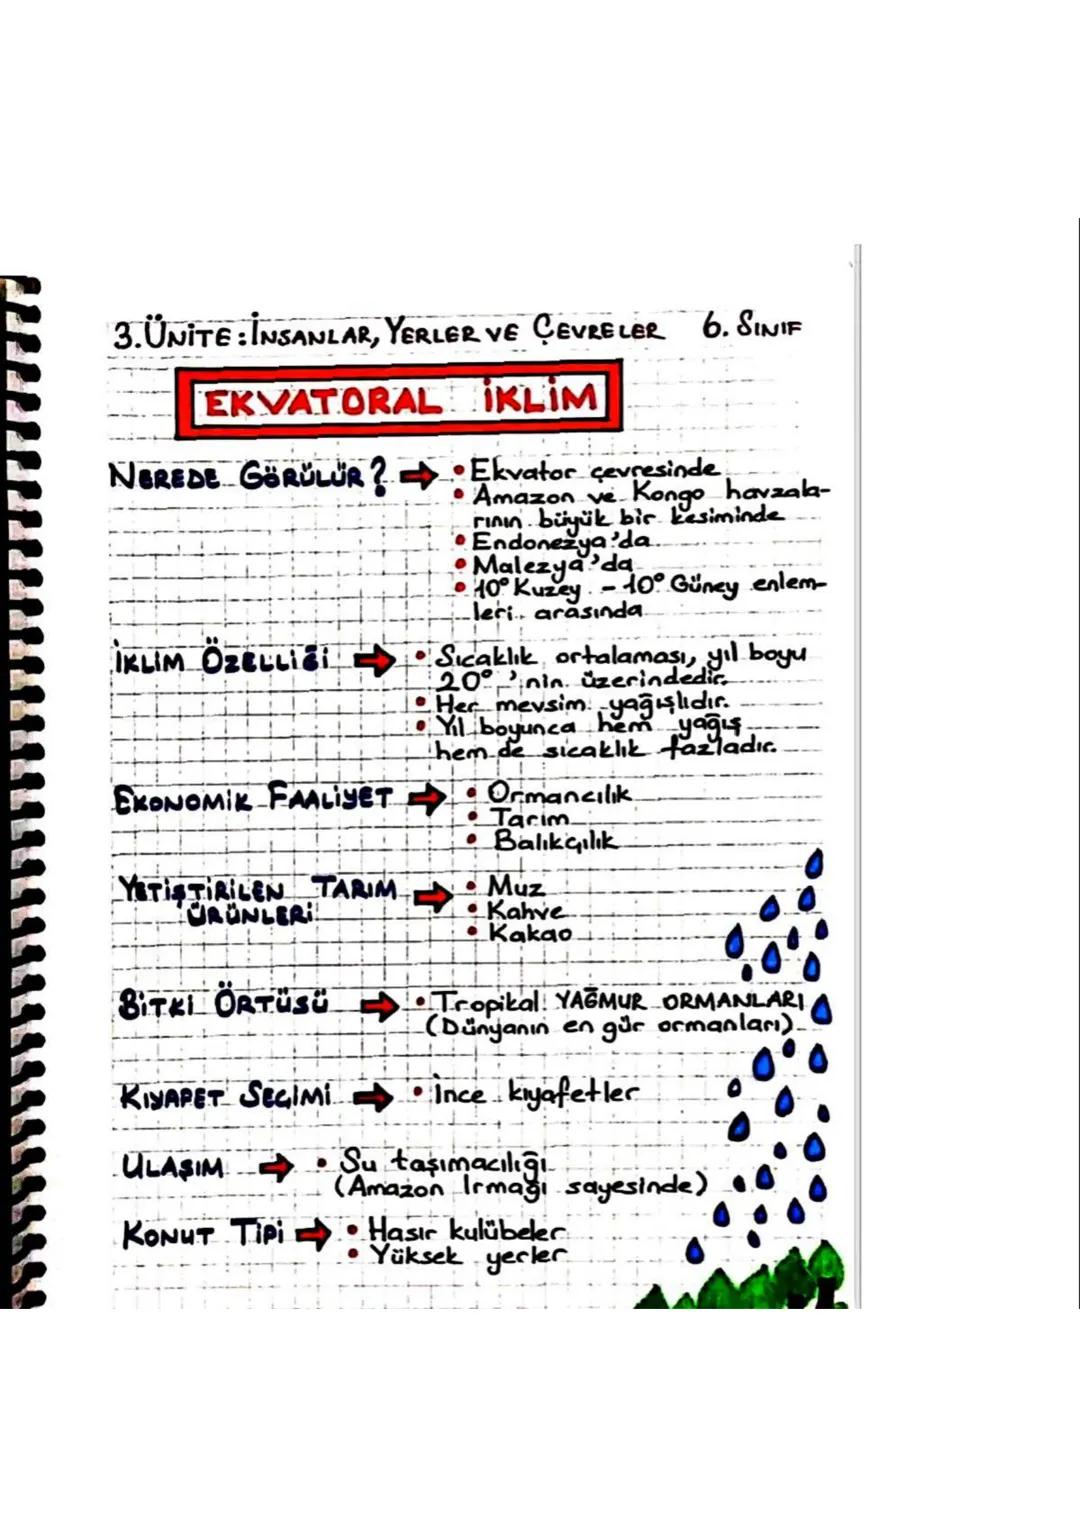 3. ÜNİTE: İNSANLAR, YERLER VE ÇEVRELER 6. SINIF
EKVATORAL İKLİM
NEREDE GÖRÜLÜR? → • Ekvator çevresinde
• Amazon ve Kongo havzala-
rının büyük bir kesiminde
• Endonezya'da
• Malezya'da
• 10° Kuzey - 10° Güney enlem-
leri arasında
İKLİM ÖZELLİĞİ → • Sıcaklık ortalaması, yıl boyu
20°'nin üzerindedir.
• Her mevsim yağışlıdır.
• Yıl boyunca hem yağış
hem de sıcaklık fazladır.
EKONOMİK FAALİYET → • Ormancılık
• Tarım
• Balıkçılık
YETİŞTİRİLEN TARIM → • Muz
ÜRÜNLERİ • Kahve
• Kakao
BİTKİ ÖRTÜSÜ → • Tropikal YAĞMUR ORMANLARI
(Dünyanın en gür ormanları)
KIYAFET SEÇİMİ → • İnce kıyafetler
ULAŞIM → • Su taşımacılığı
(Amazon Irmağı sayesinde)
KONUT TİPİ → • Hasır kulübeler
• Yüksek yerler